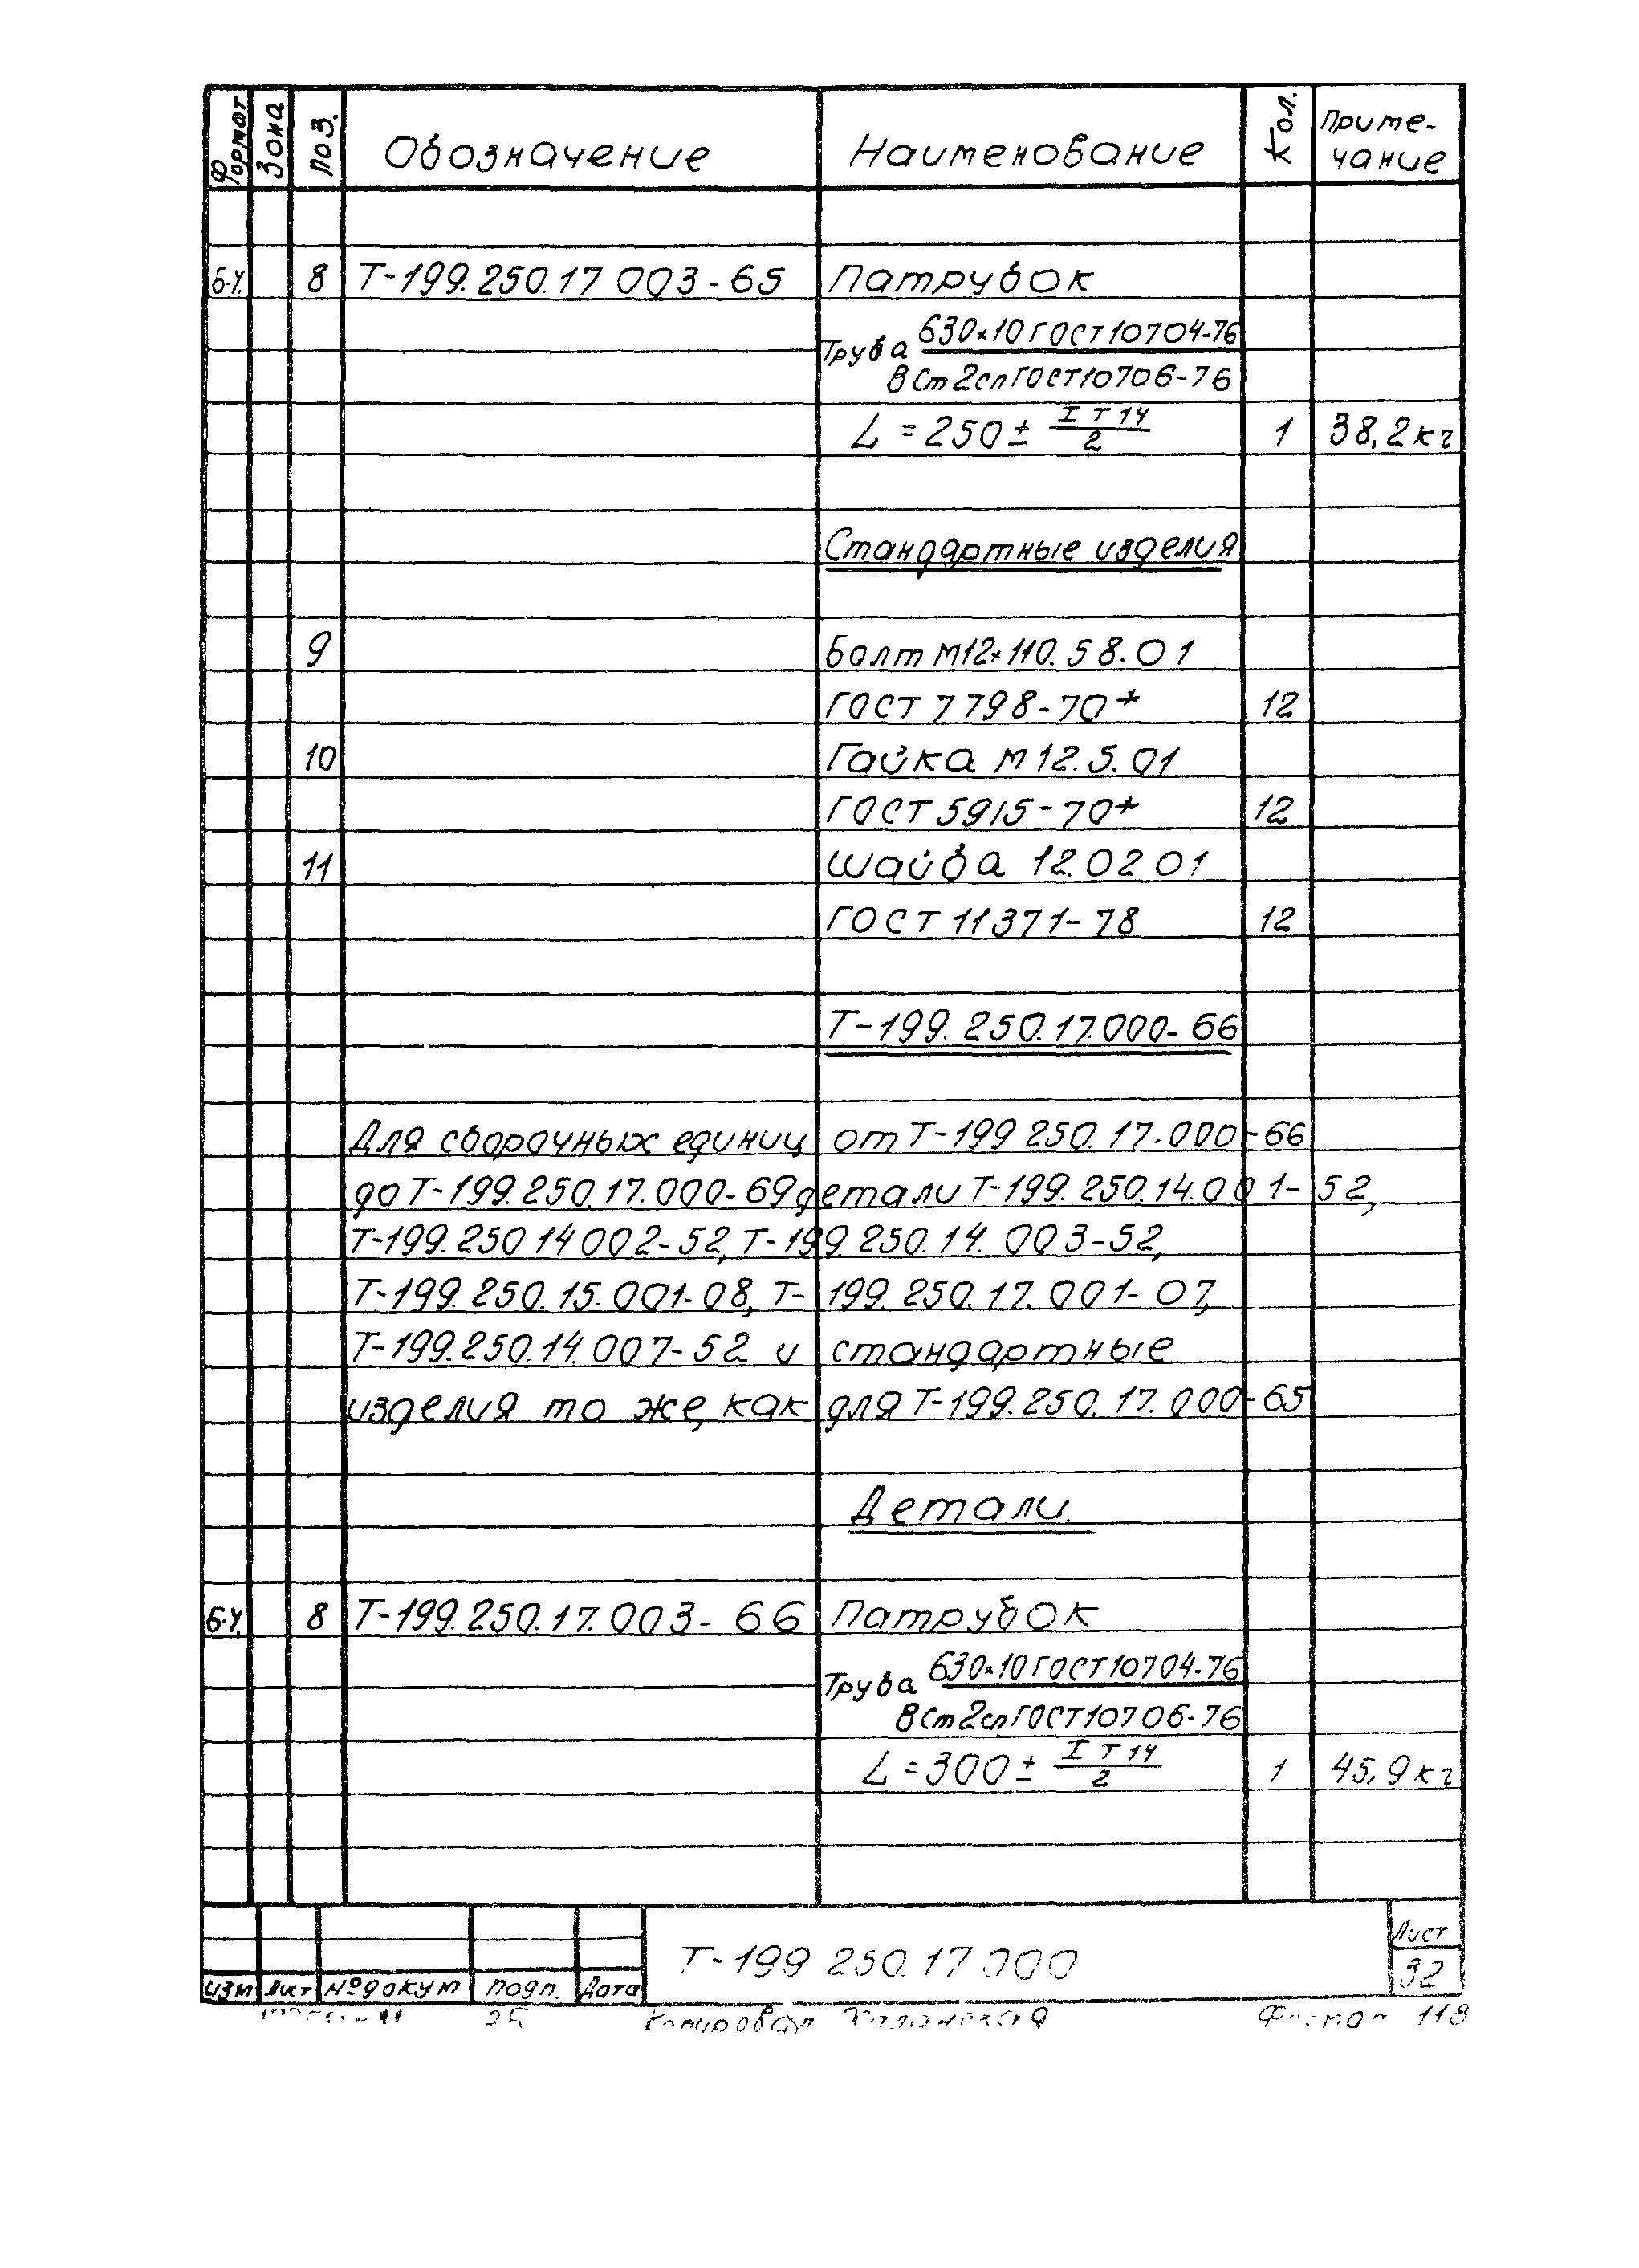 Формат Зона Поз. Обозначение Наименование Кол. Приме-
чание
б.ч. 8 Т-199.250.17 003-65 Патрубок
Труба 630×10 ГОСТ 10704-76
ВСт2сп ГОСТ 10706-76
L = 250 ± IT14/2 1 38,2 кг
Стандартные изделия
9 Болт М12×110.58.01
ГОСТ 7798-70* 12
10 Гайка М12.5.01
ГОСТ 5915-70* 12
11 Шайба 12.02 01
ГОСТ 11371-78 12
Т-199.250.17.000-66
Для сборочных единиц от Т-199 250.17.000-66
до Т-199.250.17.000-69 детали Т-199.250.14.001-52,
Т-199.250 14 002-52, Т-199.250.14.003-52,
Т-199.250.15.001-08, Т-199.250.17.001-07,
Т-199.250.14.007-52 и стандартные
изделия то же, как для Т-199.250.17.000-65
Детали.
б.ч. 8 Т-199.250.17.003-66 Патрубок
Труба 630×10 ГОСТ 10704-76
ВСт2сп ГОСТ 10706-76
L = 300 ± IT14/2 1 45,9 кг
Т-199 250.17 000 Лист
32
Изм Лист № докум Подп. Дата
Копировал Формат 118